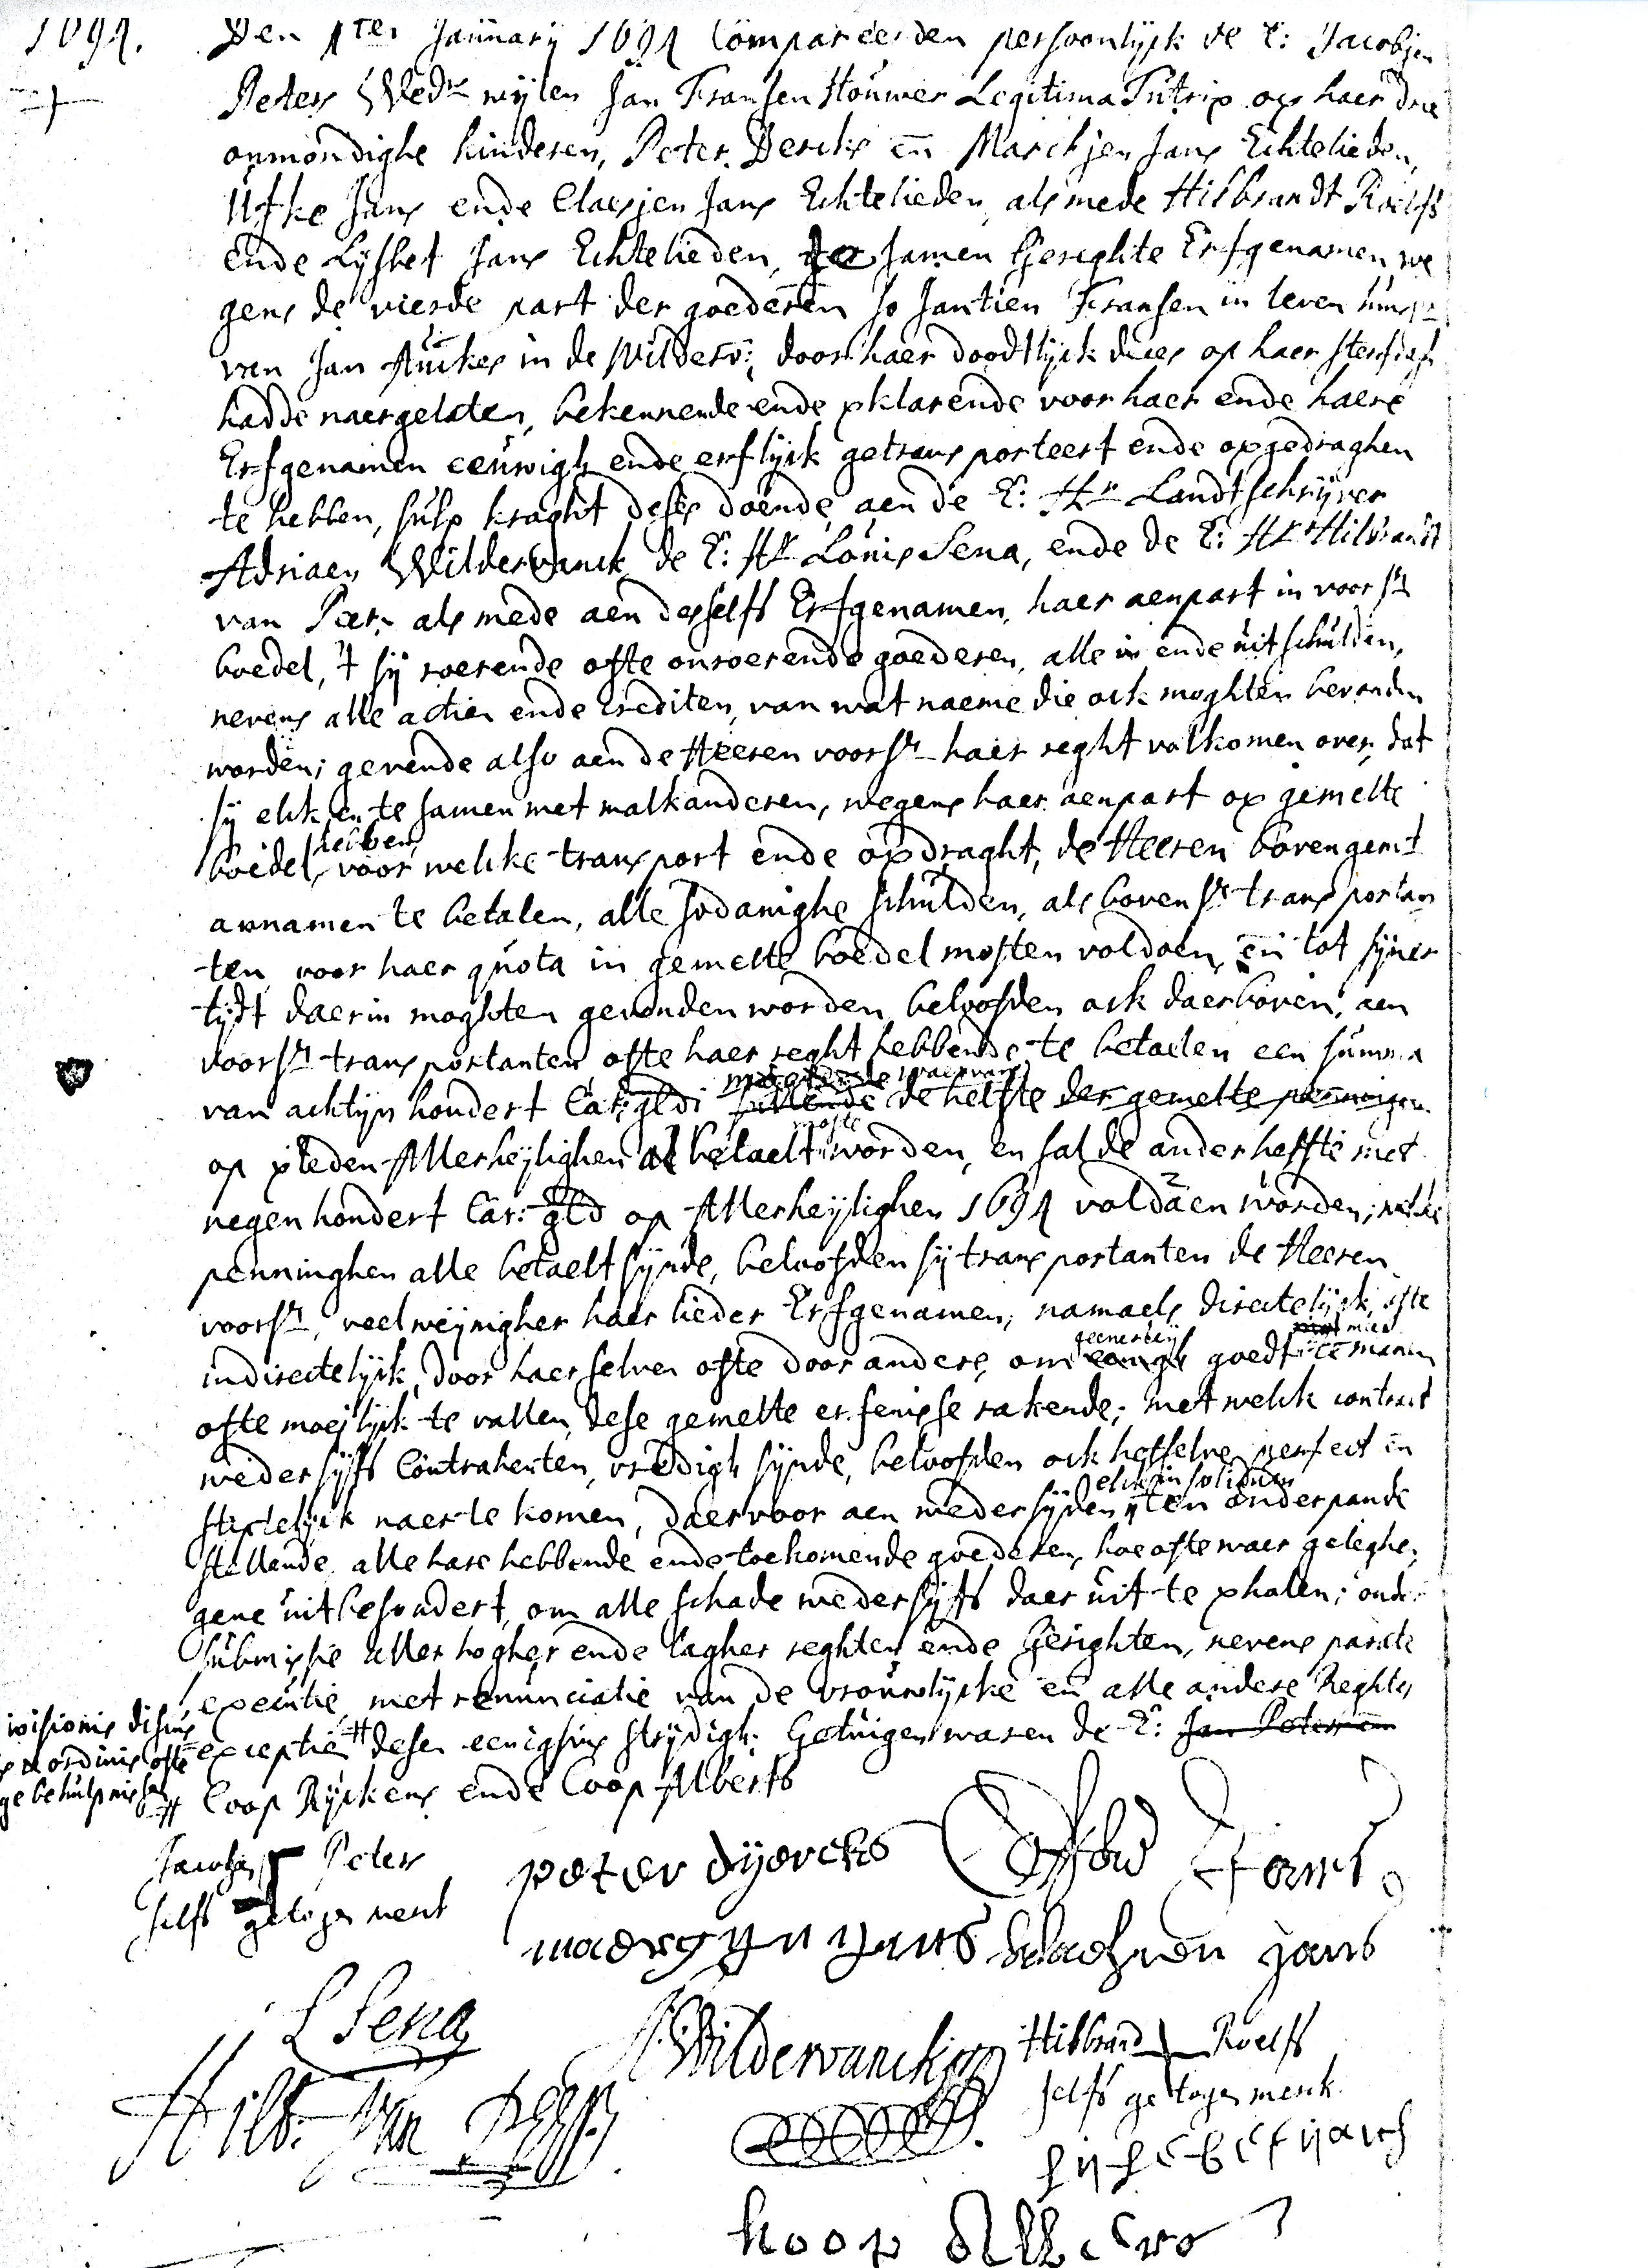 1694. Den 1ten Januarij 1694 Compareerden persoonlijck de E: Jacobjen
Peters Wedwe wijlen Jan Fransen Houwer Legitima Tutrix over haer drie
onmondighe kinderen, Peter Dercks en Marchjen Jans Echtelieden,
Uffke Jans ende Claesjen Jans Echtelieden, als mede Hilbrandt Roelfs
Ende Lijsbet Jans Echtelieden, te samen Geregte Erfgenamen we
gens de vierde part der goederen so Jantien Fransen in leven
van Jan Auckes in de Wilderv: door haer doodtlijck
hadde naergelaten, bekennende ende verklarende voor haer ende haere
Erfgenamen eeuwigh ende erflijck getransporteert ende opgedraghen
te hebben, sulx kraght deses doende aen de E: Hr Landtschrijver
Adriaen Wildervanck, de E: Hr Louis Sena, ende de E: Hr Hilbrandt
van als mede aen desselfs Erfgenamen, haer aenpart in voors.
boedel, 't sij roerende ofte onroerende goederen, alle in ende uitschulden,
nevens alle actien ende Crediten, van wat naeme die ock moghten bevonden
worden; gevende also aen de Heeren voors. haer reght volkomen over, dat
sij elck en te samen met malkanderen, wegens haer aenpart op gemelte
hebben
boedel, voor welcke transport ende opdraght, de Heeren bovengemt
annamen te betalen, alle sodanighe schulden, als bovens. transportan
ten voor haer quota in gemelte boedel mosten voldoen, en tot sijner
tijdt daerin moghten gevonden worden, beloofden ock daerboven, aen
voors. transportanten ofte haer reght hebbende te betaelen een summa
waervan
van achtijn hondert Car: gldi sullende de helfte der gemelte penningen
moste
op verleden Allerheijlighen al betaelt worden, en sal de ander helfte met
negen hondert Car: gld op Allerheijlighen 1694 voldaen worden; welcke
penninghen alle betaelt sijnde, beloofden sij transportanten de Heeren
voors. veel weijnigher haer lieder Erfgenamen, namaels directelijck, ofte
geenerleij meer
indirectelijck, door haer selven ofte door andere, om eenigh goedt te manen
ofte moeijlijck te vallen, dese gemelte erfenisse rakende; met welck contract
wedersijts Contrahenten, vredigh sijnde, beloofden ock hetselve perfect en
elck in solidum
stiptelijck naer te komen, daervoor aen wedersijden ten onderpande
stellende alle hare hebbende ende toekomende goederen, hoe ofte waer geleghen,
gene uitbesondert, om alle schade wedersijts daer uit te verhalen; onder
submissie aller hogher ende lagher reghten ende Gerighten, nevens parate
executie, met renunciatie van de vrouwlijcke en alle andere Reghts
exceptien # desen eenighsins strijdigh. Getuigen waren de E: Jan Peters en
ivisionis discus
s et ordinis ofte
ge behulpnissen #
Coop Rijckens ende Coop Alberts
Jacobjen Peters
selfs getogen merck
peter dyercks
Offke Jans
maergyn yans
Klaesyen yans
L Sena
A: Wildervanck
Hilbrand Roelfs
selfs getogen merck
Hilb: Van
lysebet yans
koop Alberts